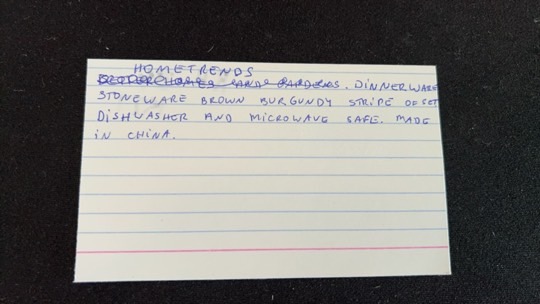 HOMETRENDS
BETTER HOMES AND GARDENS. DINNERWARE
STONEWARE BROWN BURGUNDY STRIPE OF SET
DISHWASHER AND MICROWAVE SAFE. MADE
IN CHINA.